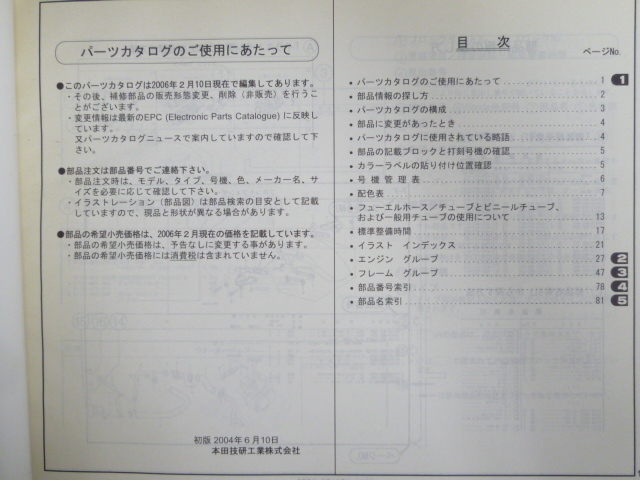 パーツカタログのご使用にあたって
●このパーツカタログは2006年2月10日現在で編集してあります。
・その後、補修部品の販売形態変更、削除（非販売）を行うこ
とがございます。
・変更情報は最新のEPC (Electronic Parts Catalogue) に反映し
ています。
又パーツカタログニュースで案内していますので確認して下
さい。
●部品注文は部品番号でご連絡下さい。
・部品注文時は、モデル、タイプ、号機、色、メーカー名、サ
イズを必要に応じて確認して下さい。
・イラストレーション（部品図）は部品検索の目図として記載
していますので、現品と形状が異なる場合があります。
●部品の希望小売価格は、2006年2月現在の価格を記載しています。
・部品の希望小売価格は、予告なしに変更する事があります。
・部品の希望小売価格には消費税は含まれていません。
初版 2004年6月10日
本田技研工業株式会社
目 次
ページNo.
• パーツカタログのご使用にあたって 1 1
• 部品情報の探し方 2
• パーツカタログの構成 3
• 部品に変更があったとき 4
• パーツカタログに使用されている略語 4
• 部品の記載ブロックと打刻号機の確認 5
• カラーラベルの貼り付け位置確認 5
• 号 機 管 理 表 6
• 配色表 7
• フューエルホース／チューブとビニールチューブ、
および一般用チューブの使用について 13
• 標準整備時間 17
• イラスト インデックス 21
• エンジン グループ 27 2
• フレーム グループ 47 3
• 部品番号索引 78 4
• 部品名索引 81 5